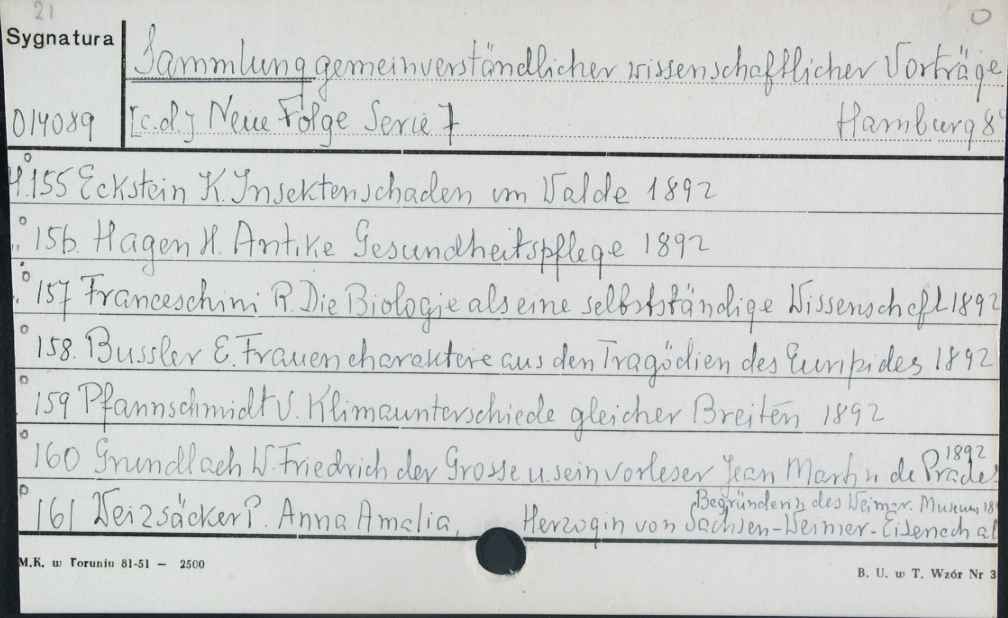 21
Sygnatura
Sammlung gemeinverständlicher wissenschaftlicher Vorträge
014089 [c.d.] Neue Folge Serie 7 Hamburg 89
H.155 Eckstein K. Insektenschaden im Walde 1892
" 156. Hagen H. Antike Gesundheitspflege 1892
" 157 Franceschini R. Die Biologie als eine selbstständige Wissenschaft 1892
158. Bussler E. Frauencharaktere aus den Tragödien des Euripides 1892
159 Pfannschmidt V. Klimaunterschiede gleicher Breiten 1892
160 Grundlach W. Friedrich der Grosse u. sein vorleser Jean Martin de Prades 1892
161 Weizsäcker P. Anna Amalia, Herzogin von Sachsen-Weimar-Eisenach
Begründerin des Weimar. Museum 18
M.K. w Toruniu 81-51 — 2500
B. U. w T. Wzór Nr 3